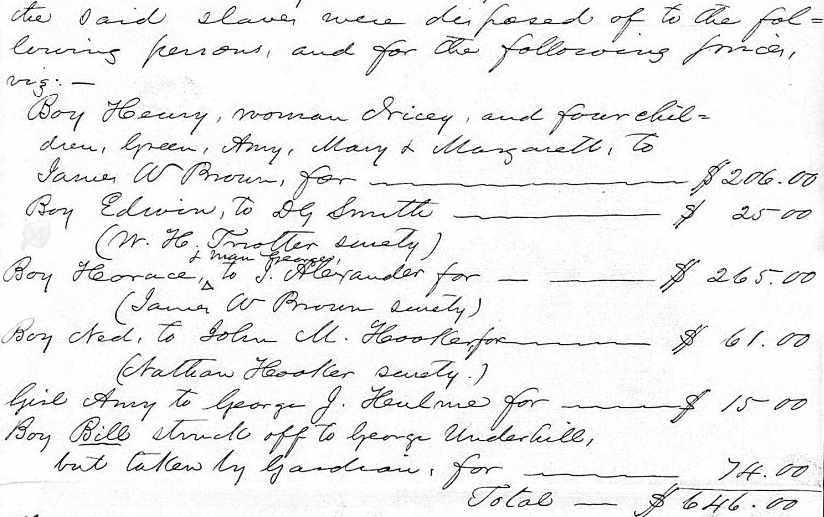 the said slaves were disposed of to the fol=
lowing persons, and for the following prices,
viz: —
Boy Henry, woman Dicey, and four chil=
dren, Green, Amy, Mary & Margarett, to
James W Brown, for — $206.00
Boy Edwin, to DG Smith — $ 25 00
(W. H. Trotter surety)
& man George,
Boy Horace, to J. Alexander for — — $ 265.00
(James W Brown surety)
Boy Ned, to John M. Hooker for — $ 61.00
(Nathan Hooker surety.)
Girl Amy to George J. Hulme for — $ 15 00
Boy Bill struck off to George Underhill,
but taken by Gardian, for — 74.00
Total — $646.00